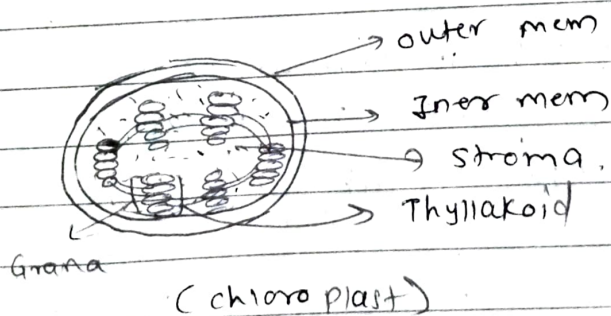 outer mem
Iner mem
Stroma.
Thyllakoid
Grana
(chloroplast)